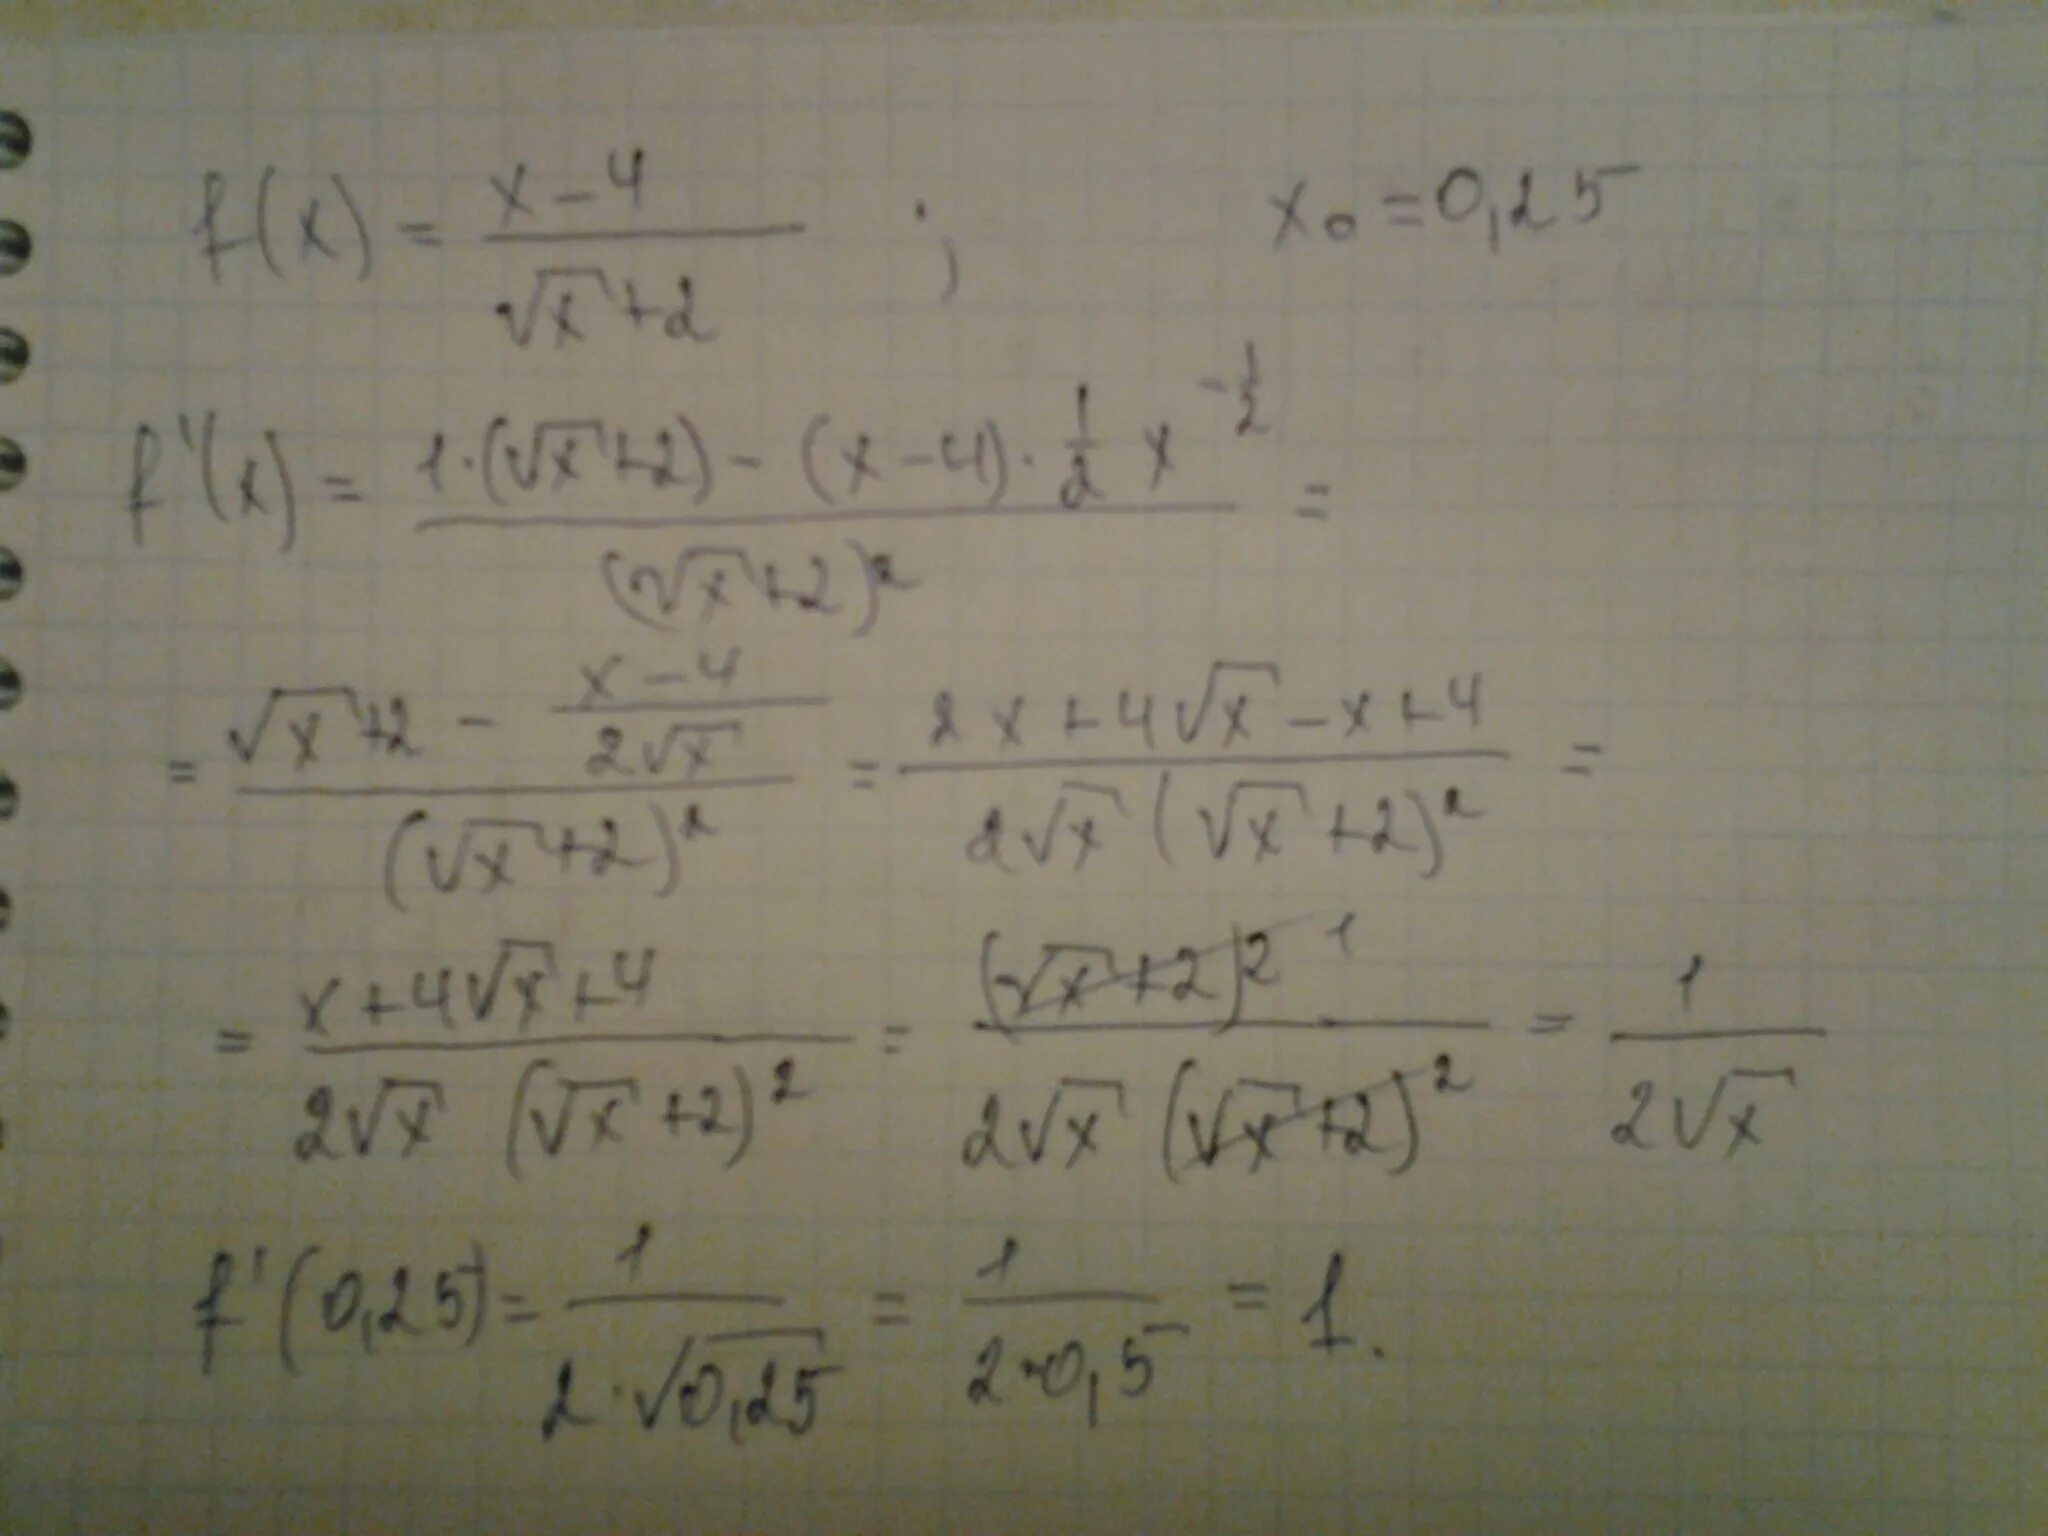 f(x) = (x-4)/(√x+2) ; x₀ = 0,25
f'(x) = (1·(√x+2) - (x-4)·1/2 x^(-1/2))/((√x+2)²) =
= (√x+2 - (x-4)/(2√x))/((√x+2)²) = (2x+4√x-x+4)/(2√x(√x+2)²) =
= (x+4√x+4)/(2√x (√x+2)²) = (√x+2)² 1/(2√x(√x+2)²) = 1/(2√x)
f'(0,25) = 1/(2·√0,25) = 1/(2·0,5) = 1.